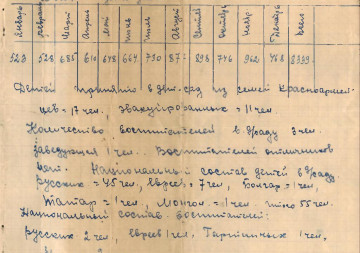 январь февраль март апрель май июнь июль август сентяб октябрь ноябр декабрь всего
523 528 685 610 648 664 730 87 898 746 902 468 8339
Детей принято в дет-сад из семей красноармей-
цев = 17 чел, эвакуированных = 11 чел
Количество воспитателей в д/саду 3 чел.
заведующая 1 чел. Воспитателей отличников
нет. Национальный состав детей в д/саду
Русских = 45 чел, Евреев = 7 чел, 1 чел,
Татар = 1 чел, Монгол = 1 чел, итого 55 чел.
Национальный состав воспитателей:
Русских 2 чел, евреев 1 чел, 1 чел,